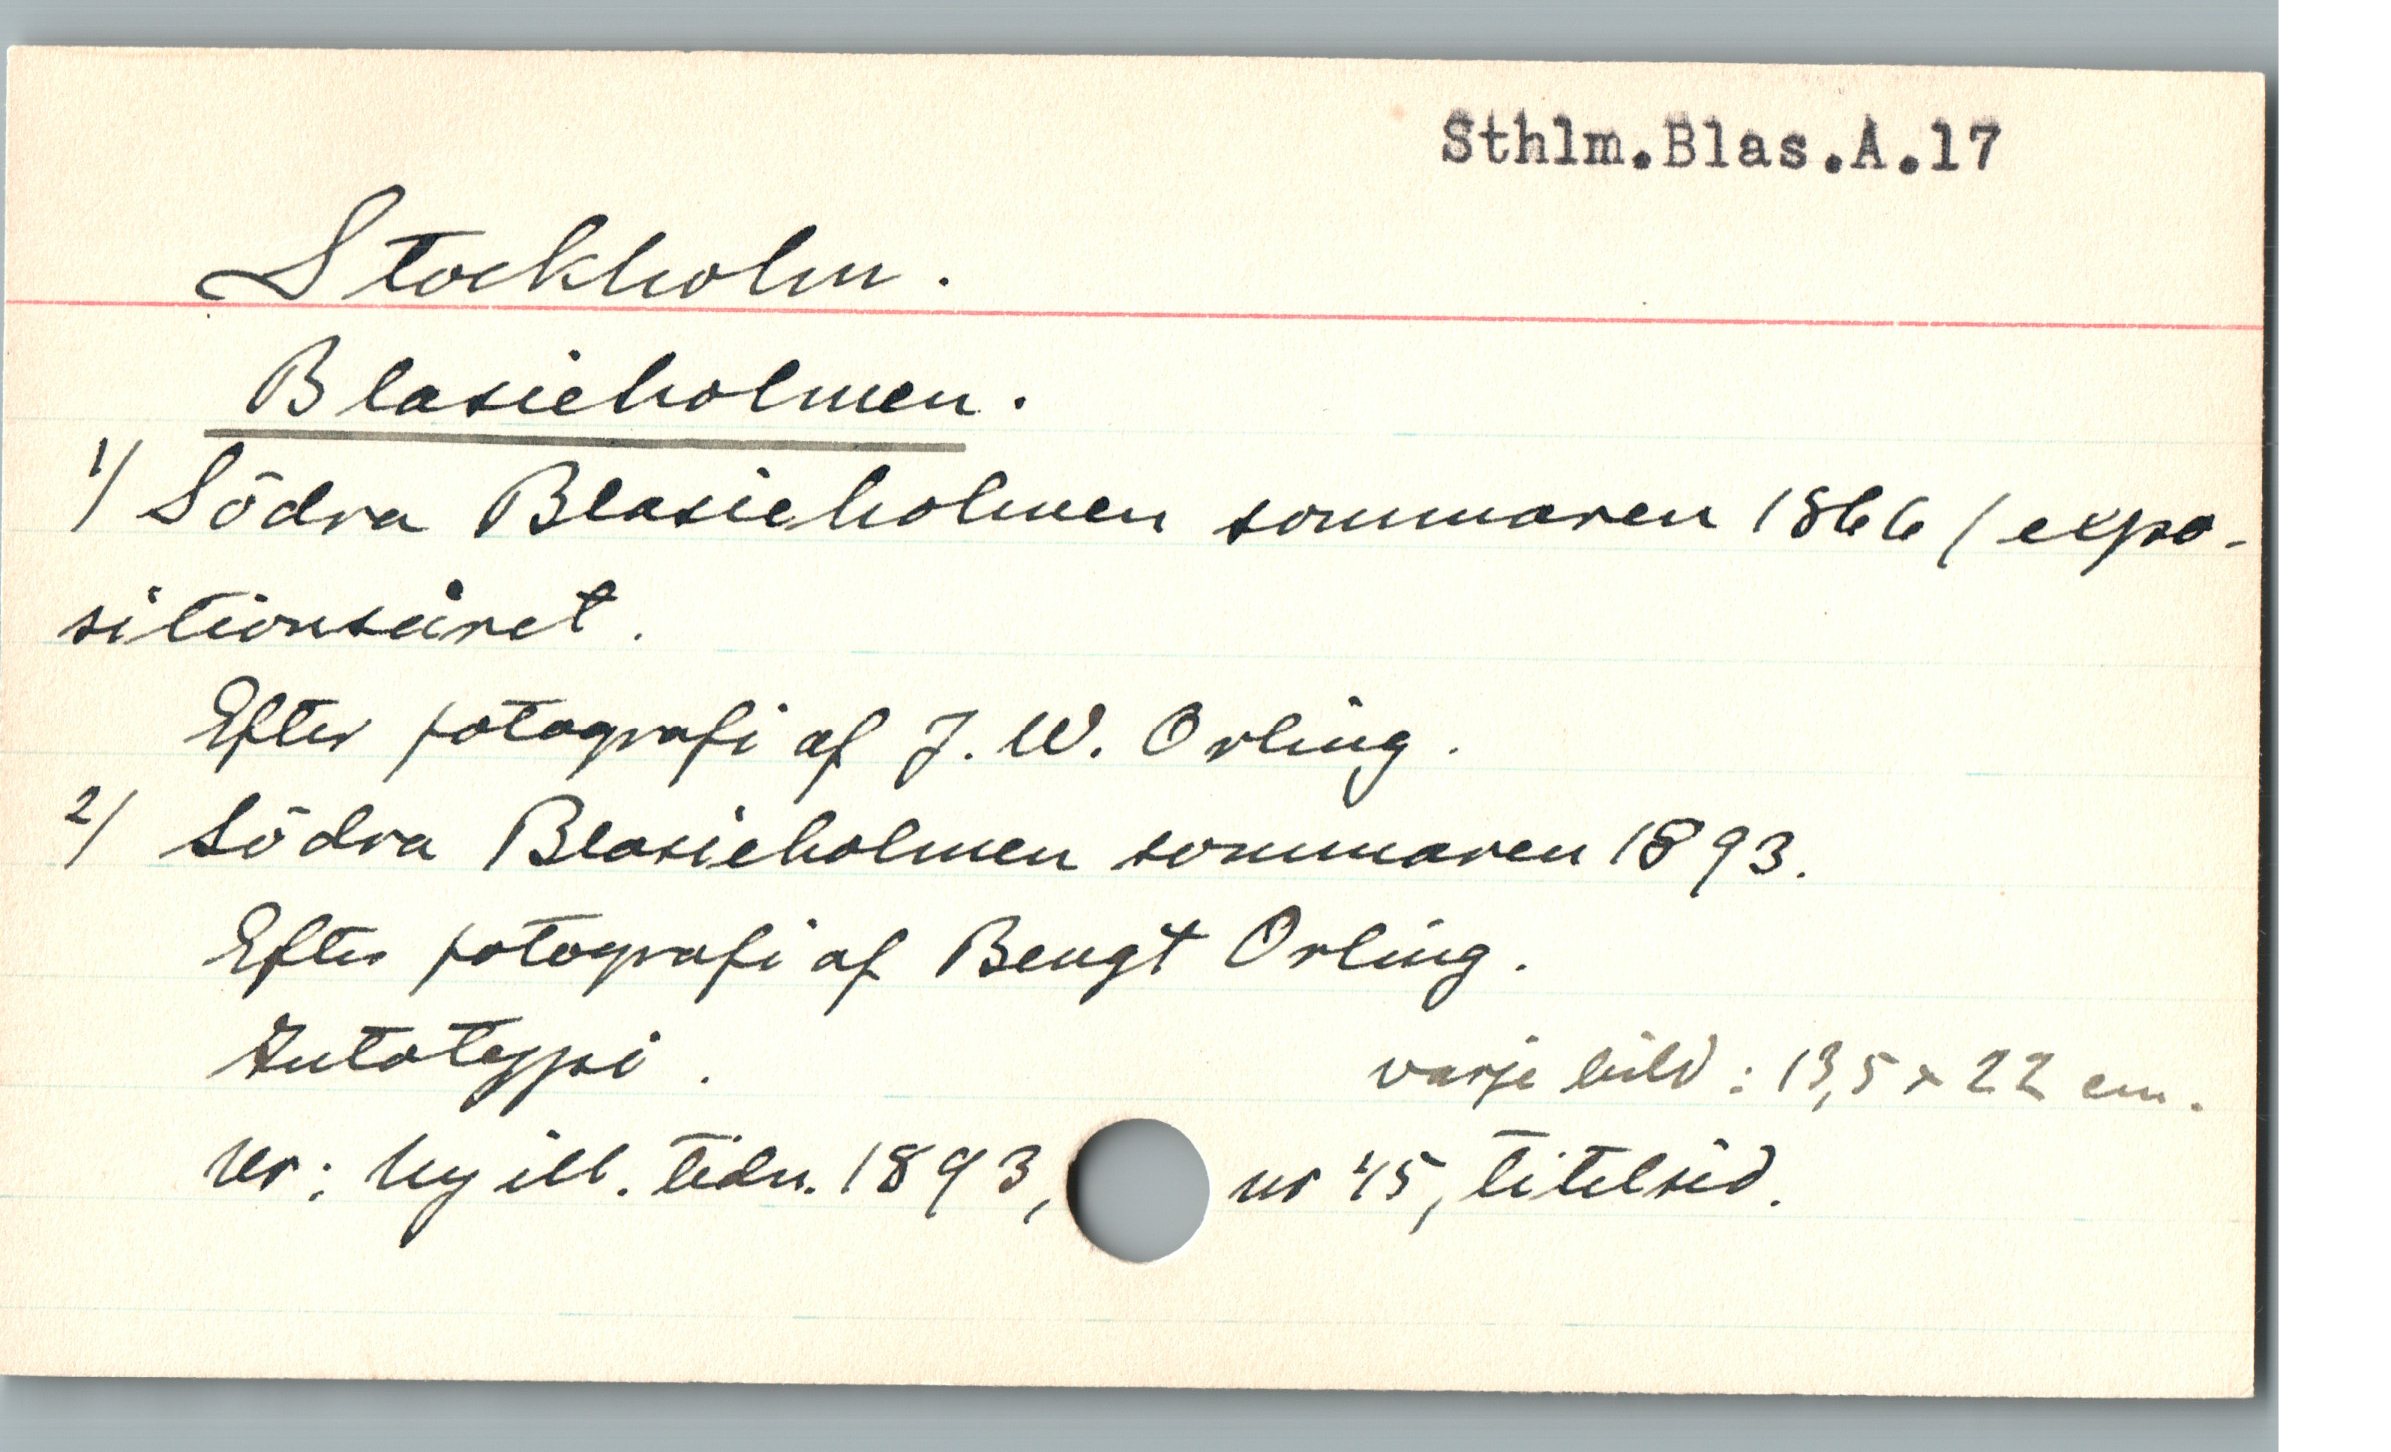 Sthlm.Blas.A.17
Stockholm.
Blasieholmen.
1/ Södra Blasieholmen sommaren 1866 / expo-
sitionsåret.
Efter fotografi af J. W. Orling.
2/ Södra Blasieholmen sommaren 1893.
Efter fotografi af Bengt Orling.
Autotypi. varje bild: 13,5 x 22 cm.
Ur: Ny ill. tidn. 1893, nr 45, titelsid.